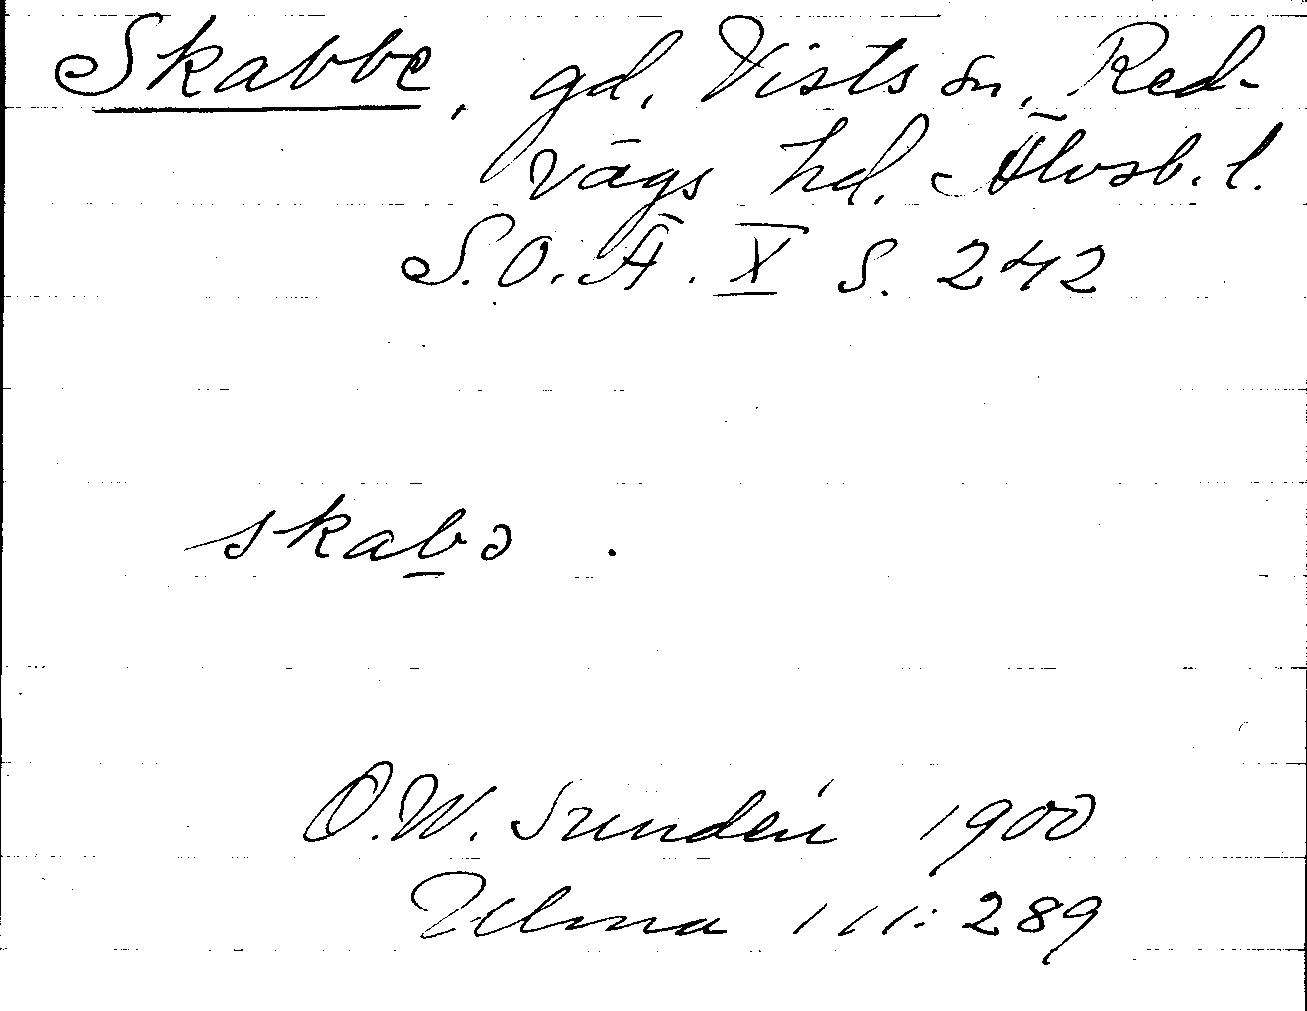 Skabbe, gd, Vists sn, Red-
vägs hd. Älvsb. l.
S.O.Ä. X S. 242
skabə.
O.W. Sundén 1900
Ulma 111:289